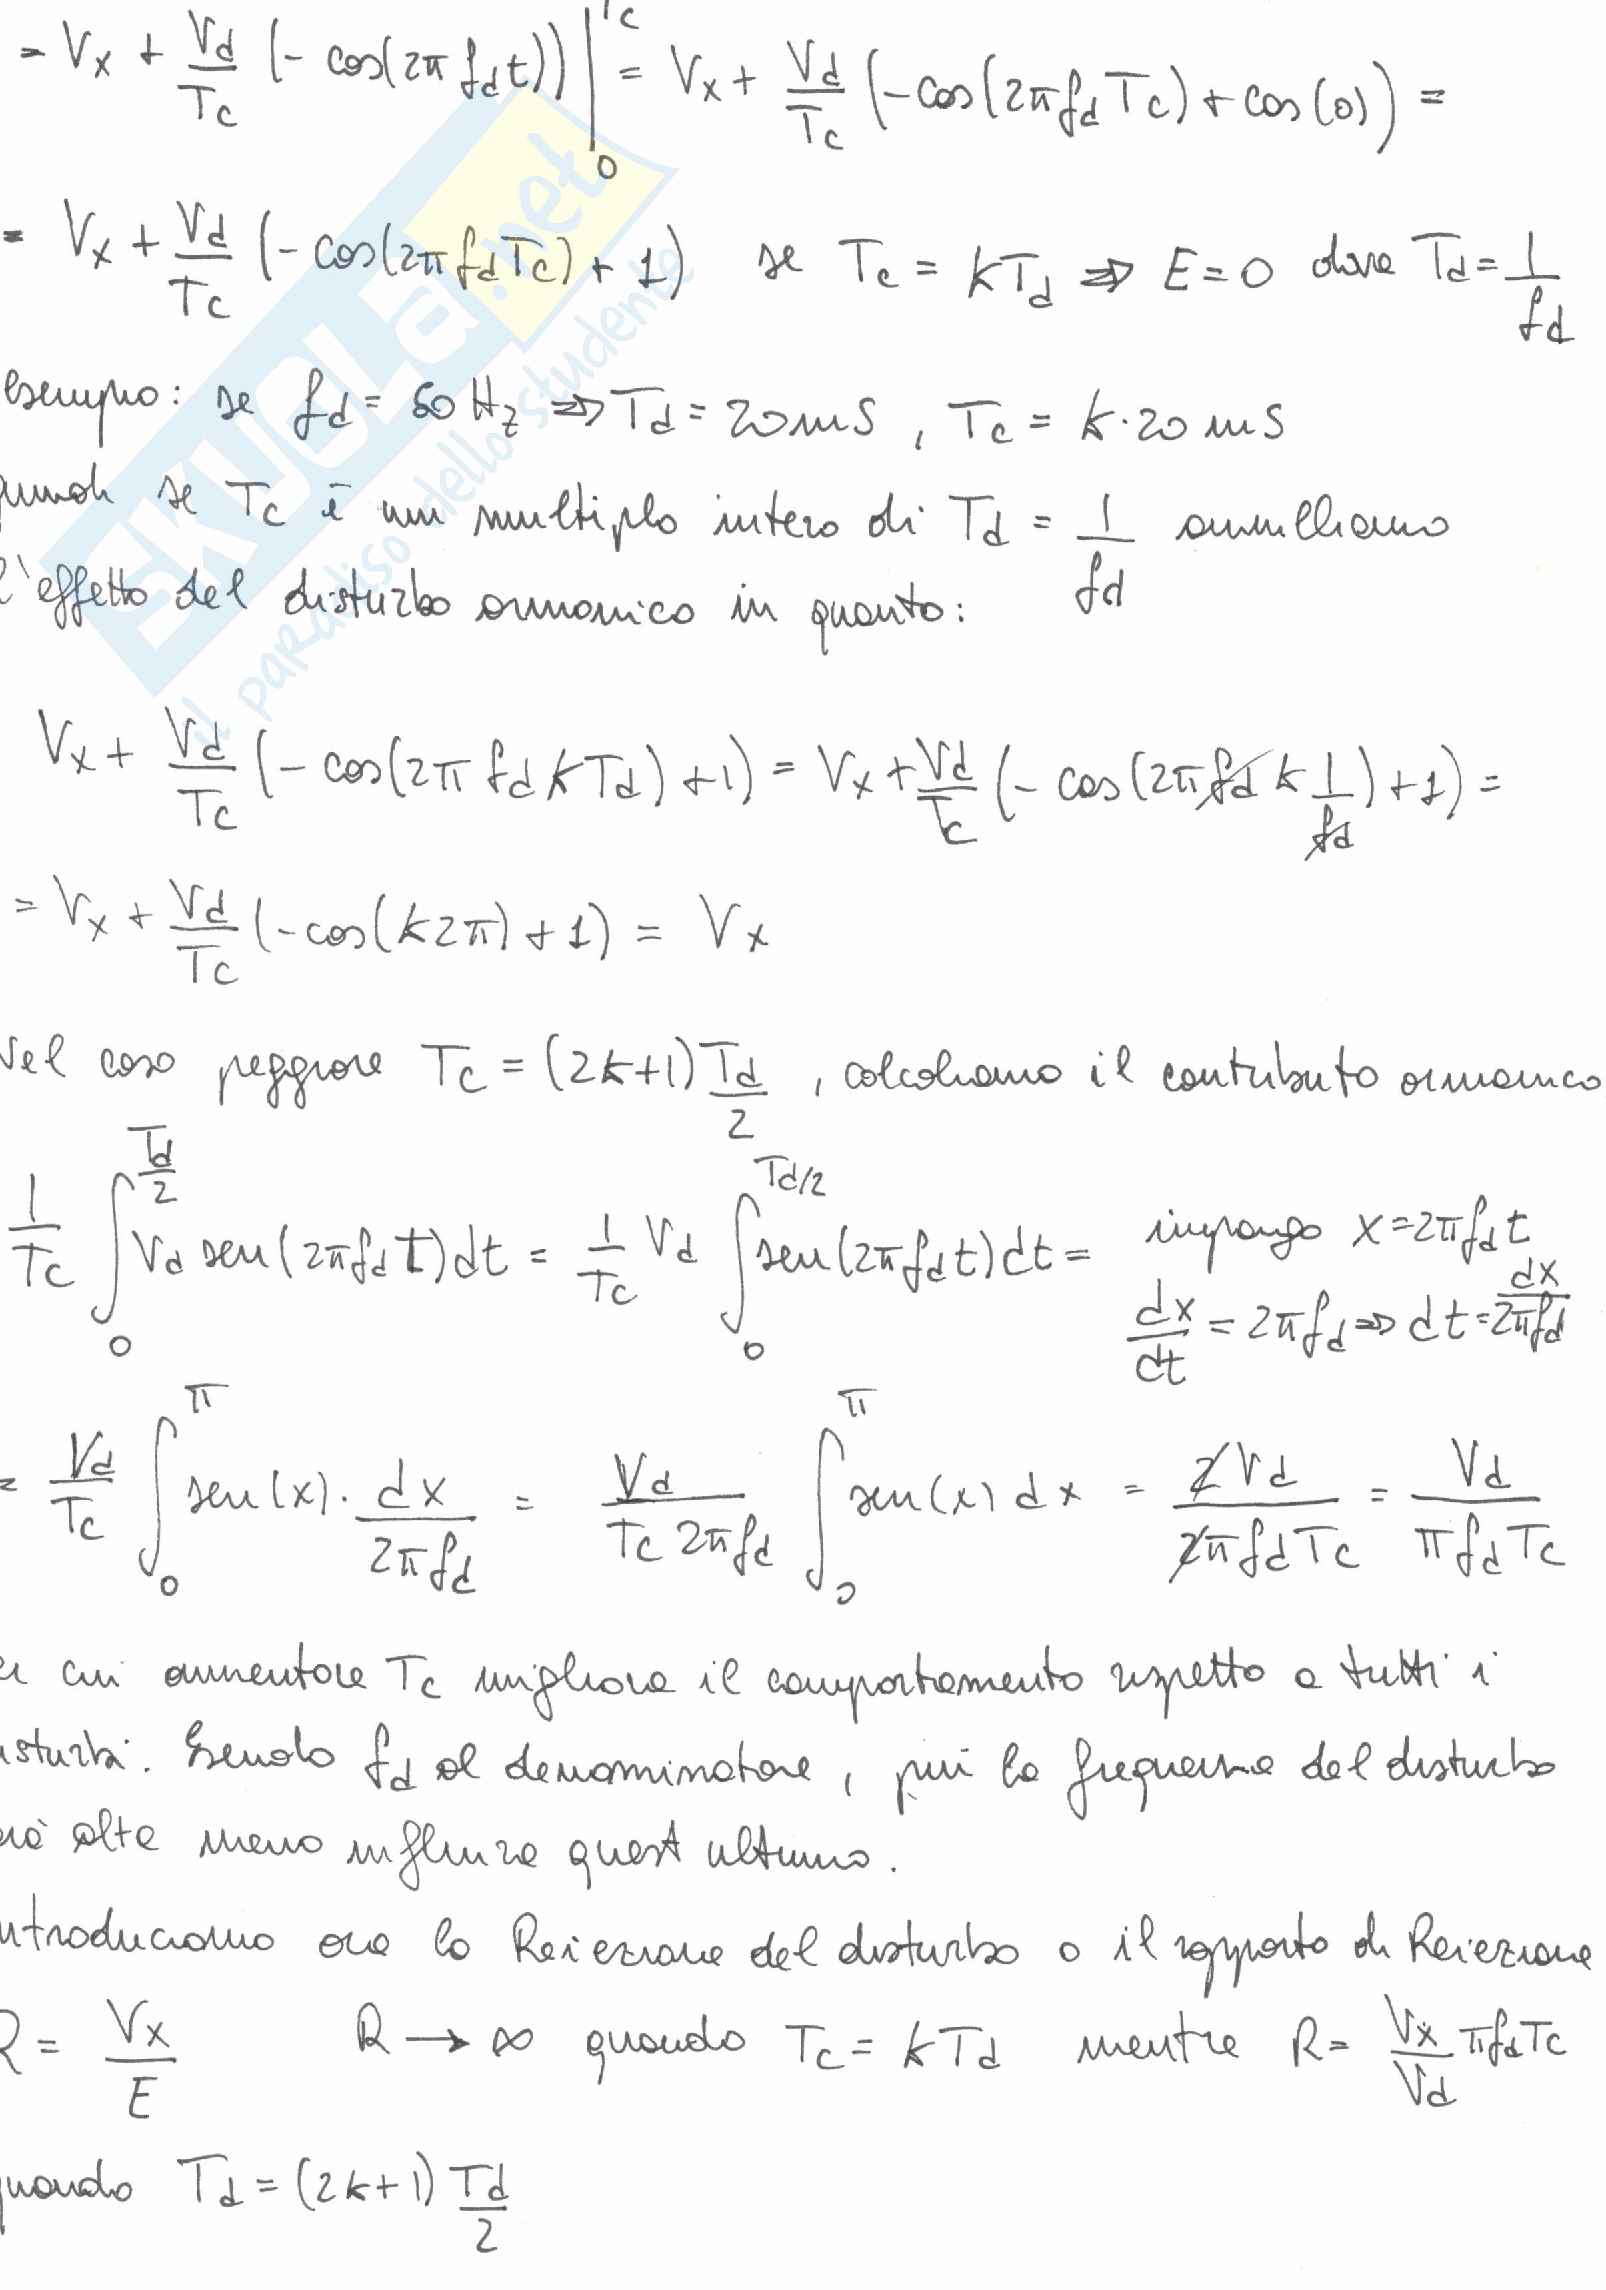 = Vx + Vd/Tc (- cos(2π fd t)) |0 Tc = Vx + Vd/Tc (-cos(2π fd Tc) + cos(0)) =
= Vx + Vd/Tc (- cos(2π fd Tc) + 1) se Tc = kTd => E = 0 dove Td = 1/fd
esempio: se fd = 50 Hz => Td = 20 mS , Tc = k·20 mS
quindi se Tc è un multiplo intero di Td = 1/fd annulliamo
l'effetto del disturbo armonico in quanto:
Vx + Vd/Tc (- cos(2π fd kTd) + 1) = Vx + Vd/Tc (- cos(2π fd k 1/fd) + 1) =
= Vx + Vd/Tc (-cos(k2π) + 1) = Vx
Nel caso peggiore Tc = (2k+1) Td/2 , calcoliamo il contributo armonico
1/Tc ∫0 Td/2 Vd sen(2π fd t) dt = 1/Tc Vd ∫0 Td/2 sen(2π fd t) dt = impongo x = 2π fd t
dx/dt = 2π fd => dt = dx/2π fd
= Vd/Tc ∫0 π sen(x) · dx/2π fd = Vd/Tc 2π fd ∫0 π sen(x) dx = 2Vd/2π fd Tc = Vd/π fd Tc
cui aumentare Tc migliora il comportamento rispetto a tutti i
disturbi. Essendo fd al denominatore, più la frequenza del disturbo
alta meno influenza quest ultimo.
introduciamo ora la Reiezione del disturbo o il rapporto di Reiezione
R = Vx/E R → ∞ quando Tc = kTd mentre R = Vx/Vd π fd Tc
quando Td = (2k+1) Td/2
SKUOLA.net
il paradiso dello studente